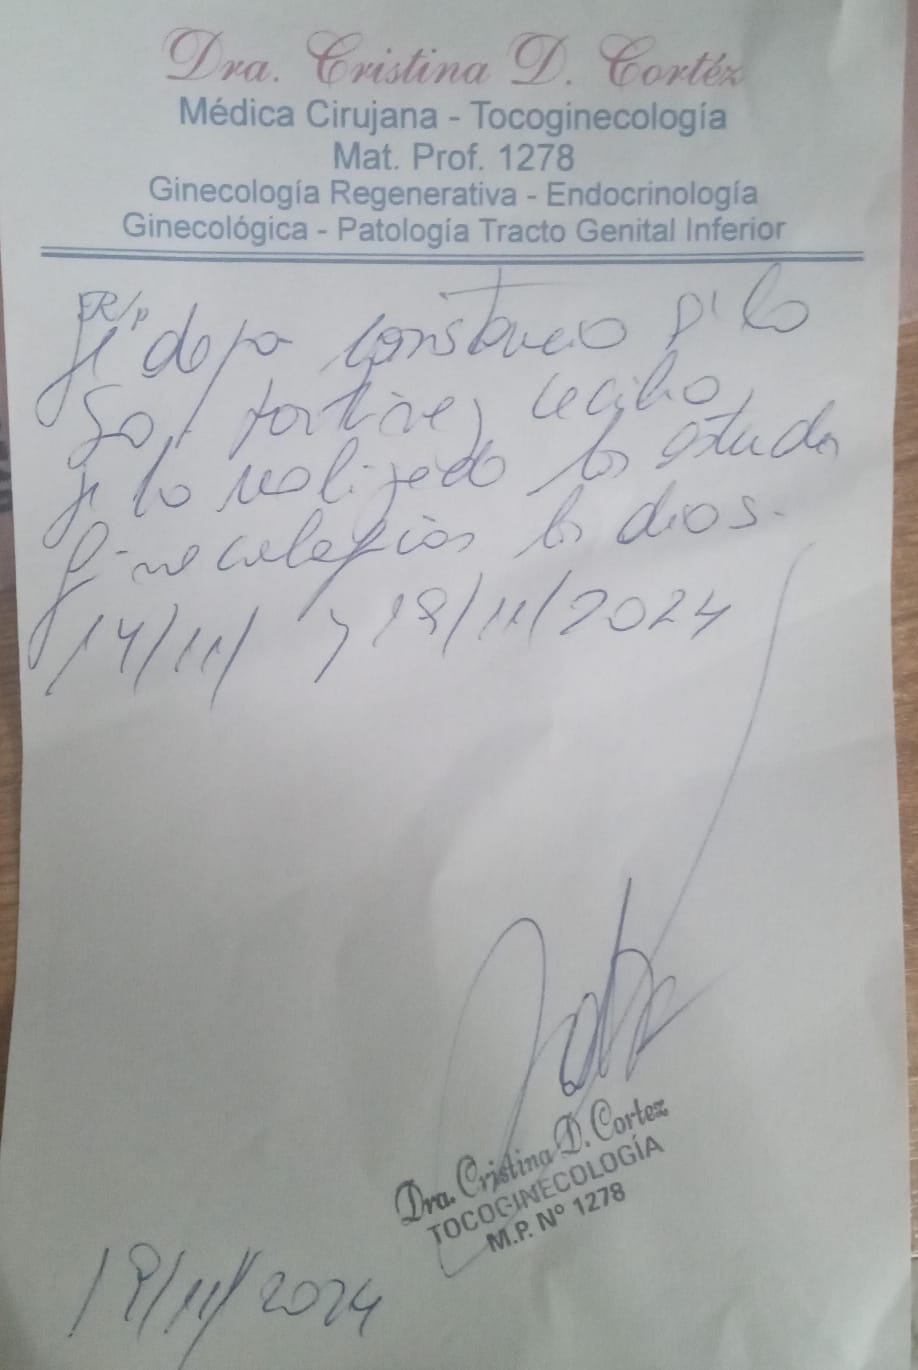 Dra. Cristina D. Cortéz
Médica Cirujana - Tocoginecología
Mat. Prof. 1278
Ginecología Regenerativa - Endocrinología
Ginecológica - Patología Tracto Genital Inferior
R/p
Se deja constancia p' la
Sra. Cecilia
se ha realizado los estudios
ginecológicos los días.
14/11/ y 19/11/2024
Dra. Cristina D. Cortez
TOCOGINECOLOGÍA
M.P. Nº 1278
19/11/2024